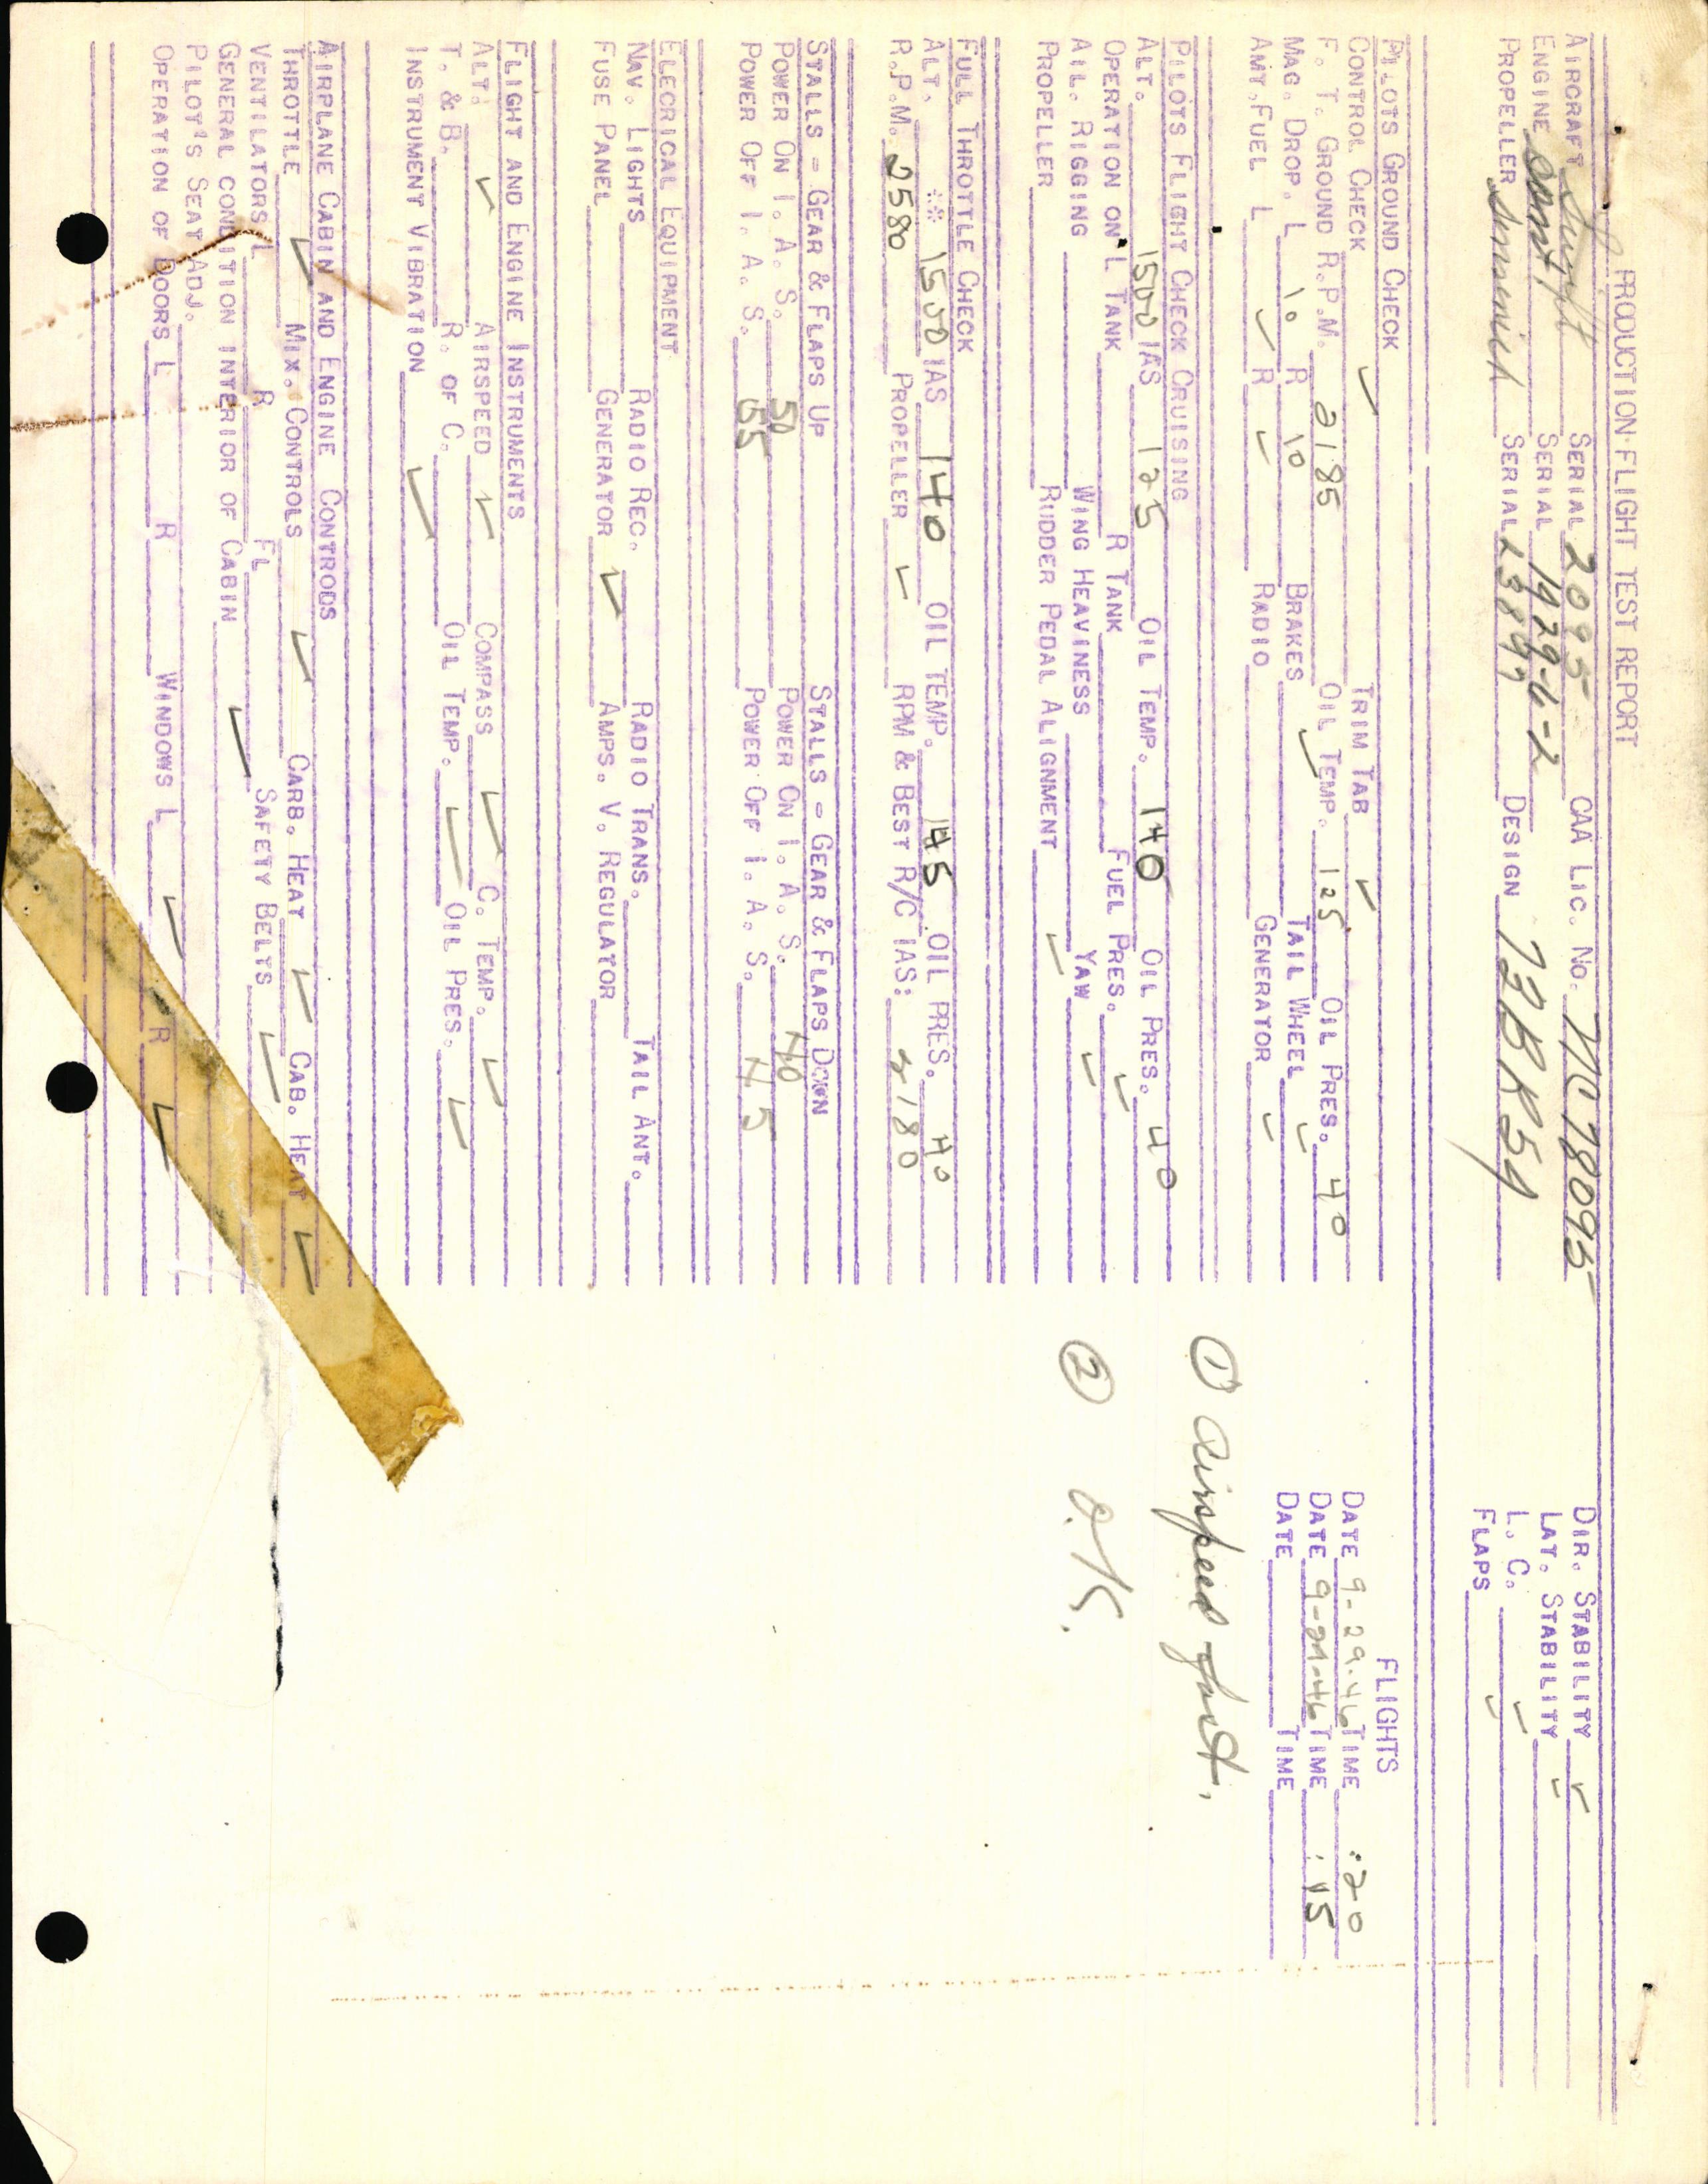 PRODUCTION FLIGHT TEST REPORT
AIRCRAFT Swift SERIAL 2095 CAA LIC. NO. NC 78095 DIR. STABILITY ✓
ENGINE Cont. SERIAL 1929-6-2 LAT. STABILITY ✓
PROPELLER Sensenich SERIAL DESIGN L. C. ✓
FLAPS ✓
PILOTS GROUND CHECK FLIGHTS
CONTROL CHECK ✓ TRIM TAB ✓ DATE 9-29-46 TIME :20
F. T. GROUND R.P.M. 2185 OIL TEMP. 125 OIL PRES. 40 DATE TIME :15
MAG. DROP. L 10 R 10 BRAKES ✓ TAIL WHEEL ✓ DATE TIME
AMT. FUEL L ✓ R ✓ RADIO GENERATOR ✓
① Airspeed fast.
② O.K.
PILOTS FLIGHT CHECK CRUISING
ALT. 1500 IAS 125 OIL TEMP. 140 OIL PRES. 40
OPERATION ON L TANK R TANK FUEL PRES. ✓
AIL. RIGGING WING HEAVINESS YAW ✓
PROPELLER RUDDER PEDAL ALIGNMENT ✓
FULL THROTTLE CHECK
ALT. ** 1500 IAS 140 OIL TEMP. 145 OIL PRES. 40
R.P.M. 2580 PROPELLER ✓ RPM & BEST R/C IAS: 2180
STALLS = GEAR & FLAPS UP STALLS = GEAR & FLAPS DOWN
POWER ON I. A. S. 50 POWER ON I. A. S. 40
POWER OFF I. A. S. 55 POWER OFF I. A. S. 45
ELECRICAL EQUIPMENT
NAV. LIGHTS RADIO REC. RADIO TRANS. TAIL ANT.
FUSE PANEL GENERATOR ✓ AMPS. V. REGULATOR
FLIGHT AND ENGINE INSTRUMENTS
ALT: ✓ AIRSPEED ✓ COMPASS ✓ C. TEMP. ✓
T. & B. R. OF C. OIL TEMP. ✓ OIL PRES. ✓
INSTRUMENT VIBRATION ✓
AIRPLANE CABIN AND ENGINE CONTRODS
THROTTLE ✓ MIX. CONTROLS ✓ CARB. HEAT ✓ CAB. HEAT ✓
VENTILATORS L R FL SAFETY BELTS ✓
GENERAL CONDITION INTERIOR OF CABIN ✓
PILOT'S SEAT ADJ.
OPERATION OF DOORS L R WINDOWS L ✓ R ✓